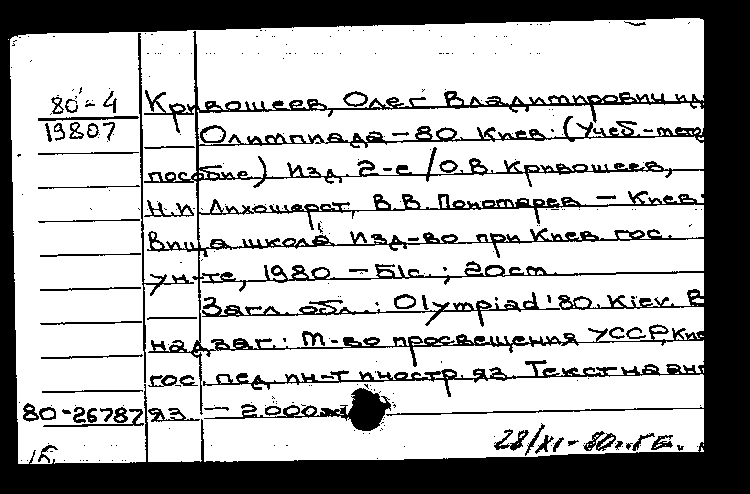 80-4
19807
Кривошеев, Олег Владимирович и др
Олимпиада-80. Киев: (Учеб.-метод
пособие) Изд. 2-е / О.В. Кривошеев,
Н.И. Лихошерот, В.В. Пономарев — Киев:
Вища школа Изд-во при Киев. гос.
ун-те, 1980 — 51с.; 20 см.
Загл. обл.: Olympiad '80. Kiev. В
надзаг.: М-во просвещения УССР, Кие
гос. пед. ин-т иностр. яз. Текст на анг
80-26787 яз. — 2.000 экз
28/XI-80г. ГБ.